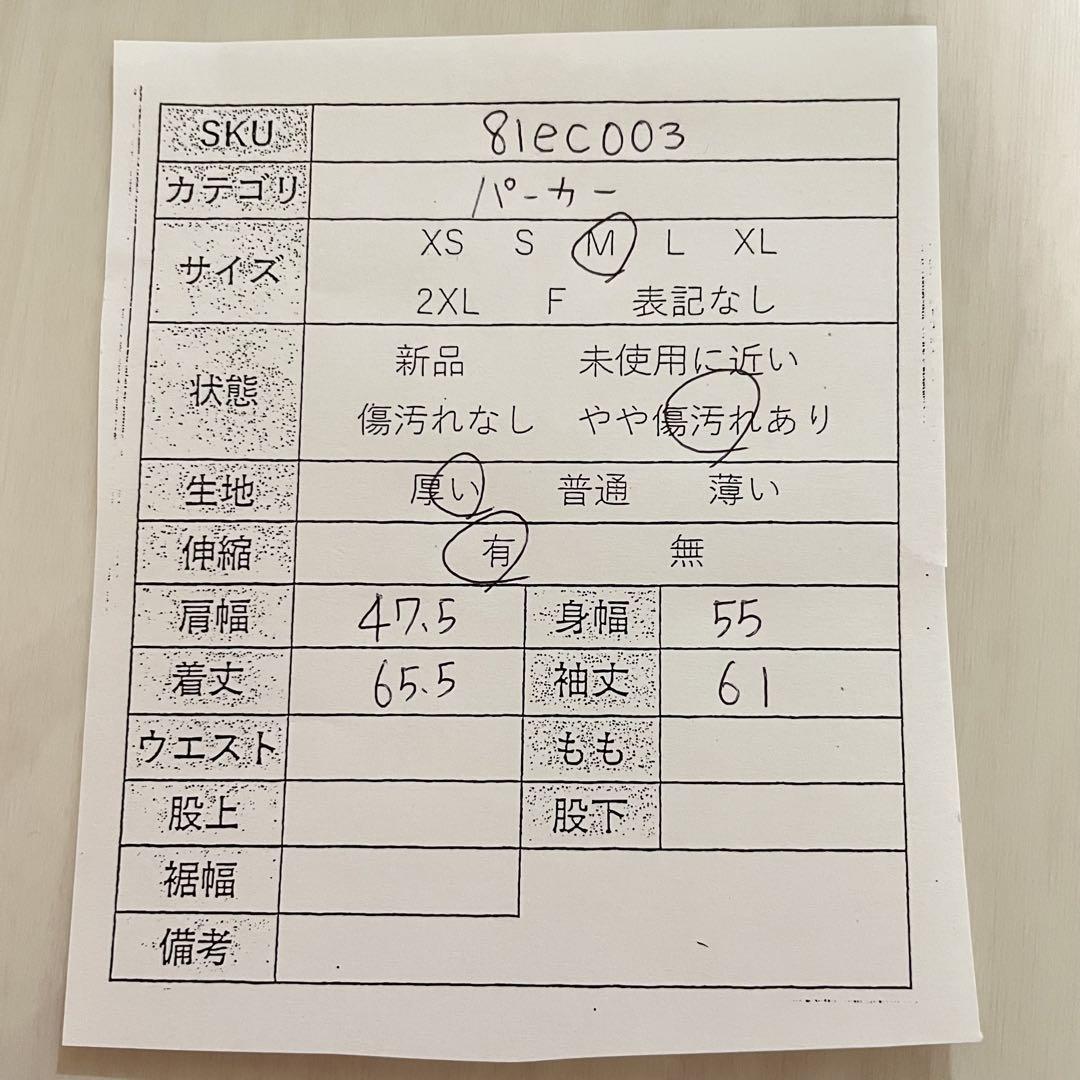 SKU 81ec003
カテゴリ パーカー
サイズ XS S M L XL
2XL F 表記なし
状態 新品 未使用に近い
傷汚れなし やや傷汚れあり
生地 厚い 普通 薄い
伸縮 有 無
肩幅 47.5 身幅 55
着丈 65.5 袖丈 61
ウエスト もも
股上 股下
裾幅
備考